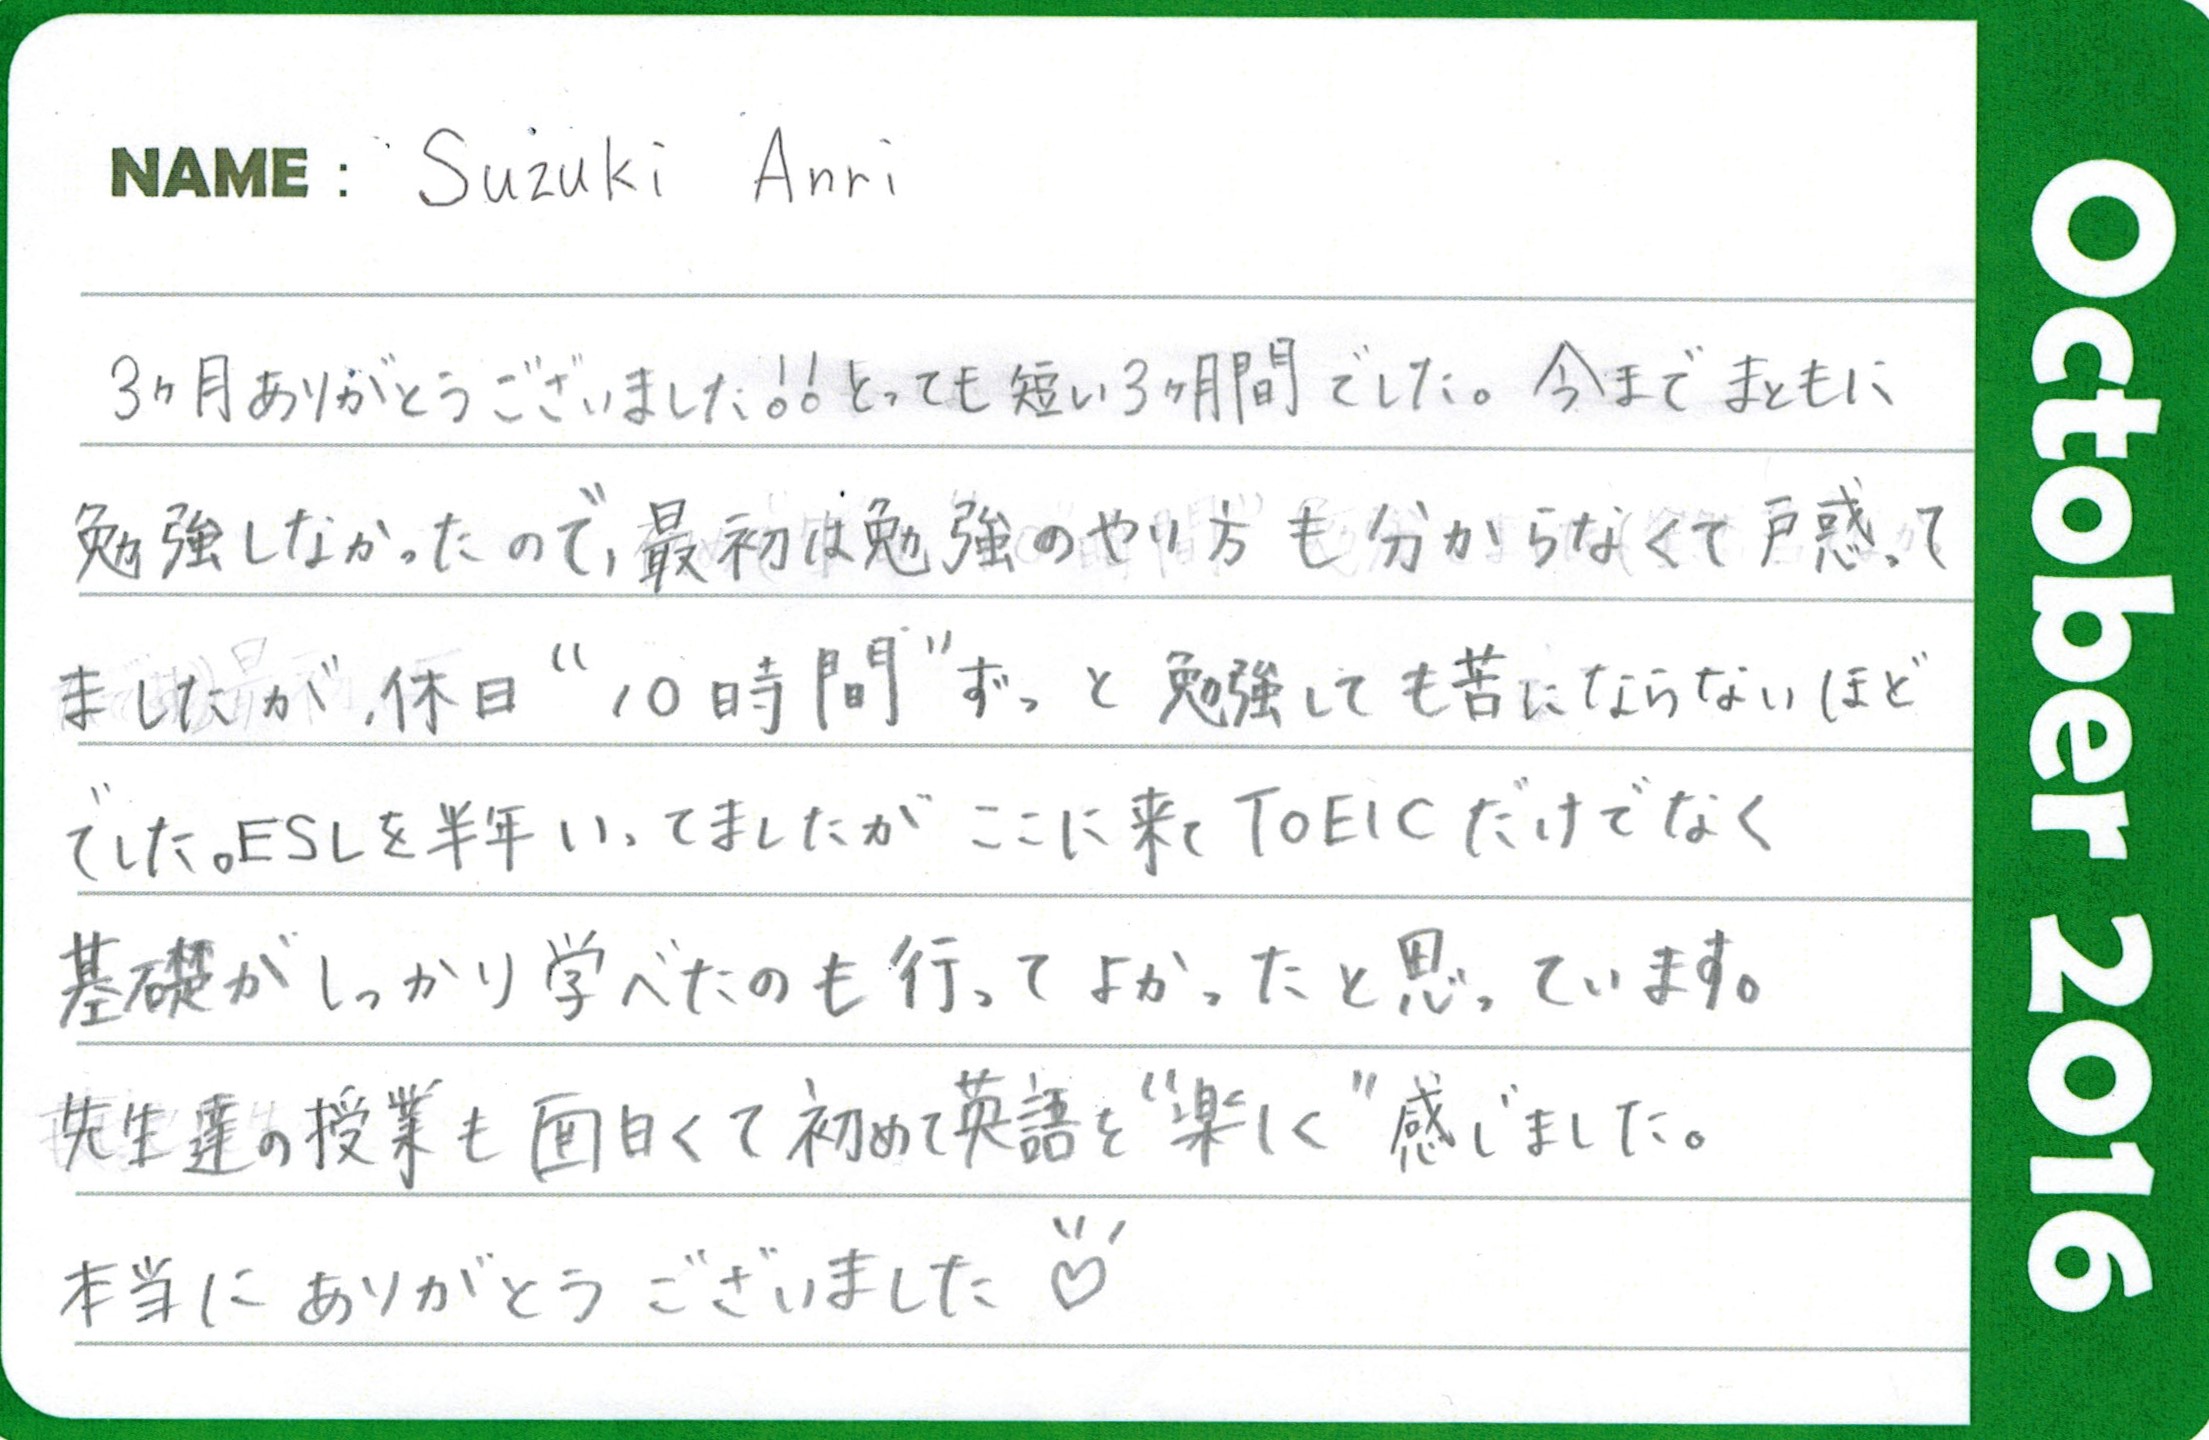 NAME : Suzuki Anri
3ヶ月ありがとうございました!! とっても短い3ヶ月間でした。今までまともに
勉強しなかったので、最初は勉強のやり方も分からなくて戸惑って
ましたが、休日“10時間”ずっと勉強しても苦にならないほど
でした。ESLを半年いってましたがここに来てTOEICだけでなく
基礎がしっかり学べたのも行ってよかったと思っています。
先生達の授業も面白くて初めて英語を“楽しく”感じました。
本当にありがとうございました♡
October 2016